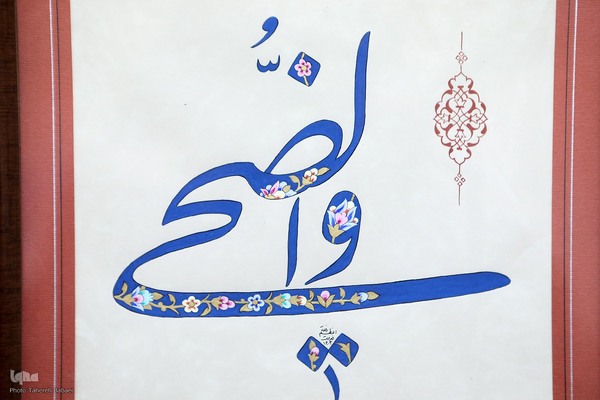 والضُّحي
iqna
Photo: Tahereh Babaei